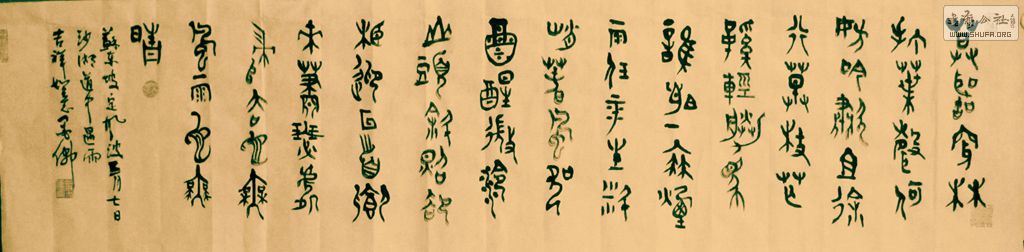 莫聽穿林
打葉聲何
妨吟嘯且徐
行竹杖芒
鞋輕勝馬
誰怕一蓑煙
雨任平生料
峭春風吹
酒醒微冷
山頭斜照卻
相迎回首向
來蕭瑟處
歸去也無
風雨也無
晴
蘇東坡定風波 月七日
沙湖道中遇雨
吉祥如意
书法公社
WWW.SHUFA.ORG